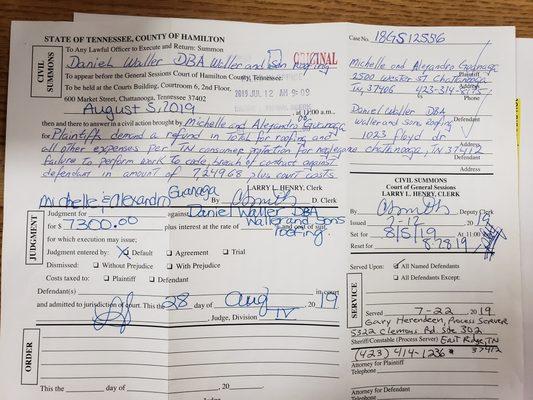 STATE OF TENNESSEE, COUNTY OF HAMILTON
To Any Lawful Officer to Execute and Return: Summon
CIVIL SUMMONS
Daniel Waller DBA Waller and son Roofing
ORIGINAL
To appear before the General Sessions Court of Hamilton County, Tennessee.
To be held at the Courts Building, Courtroom 6, 2nd Floor,
2019 JUL 12 AM 9:09
600 Market Street, Chattanooga, Tennessee 37402
August 5, 2019, at 11:00 a.m.
then and there to answer in a civil action brought by Michelle and Alexandro
for Plaintiffs demand a refund in total for roofing and
all other expenses per TN consumer protection for negligence
failure to perform work to code, breach of contract against
defendant in amount of 7,249.68 plus court costs
LARRY L. HENRY, Clerk
Michelle & Alexandro By Clerk
JUDGMENT
Judgment for against Daniel Waller DBA
Waller and Sons
roofing
for $ 7300.00 plus interest at the rate of and cost of suit
for which execution may issue;
Judgment entered by: Default Agreement Trial
Dismissed: Without Prejudice With Prejudice
Costs taxed to: Plaintiff Defendant
Defendant(s) in court
and admitted to jurisdiction of court. This the 28 day of Aug, 2019
, Judge, Division IV
ORDER
This the day of , 20
, Judge, Division
Case No. 18GS12556
Michelle and Alexandro
Chattanooga
Plaintiff
TN, 37406 423-314-
Address
Phone
Daniel Waller DBA
waller and sons Roofing
1023 Floyd dr
Defendant
chattanooga, TN 37412
Address
Defendant
Address
CIVIL SUMMONS
Court of General Sessions
LARRY L. HENRY, CLERK
By Deputy Clerk
Issued 7-12, 2019
Set for 8/5/19 At 11:00
Reset for 8-28-19
SERVICE
Served Upon: All Named Defendants
All Defendants Except:
Served 7-22, 2019
Gary Herendeen, Process Server
5322 Clemons Rd. Ste 302
Sheriff/Constable (Process Server) East Ridge, TN
37412
(423) 414-1236
Attorney for Plaintiff
Telephone
Attorney for Defendant
Telephone